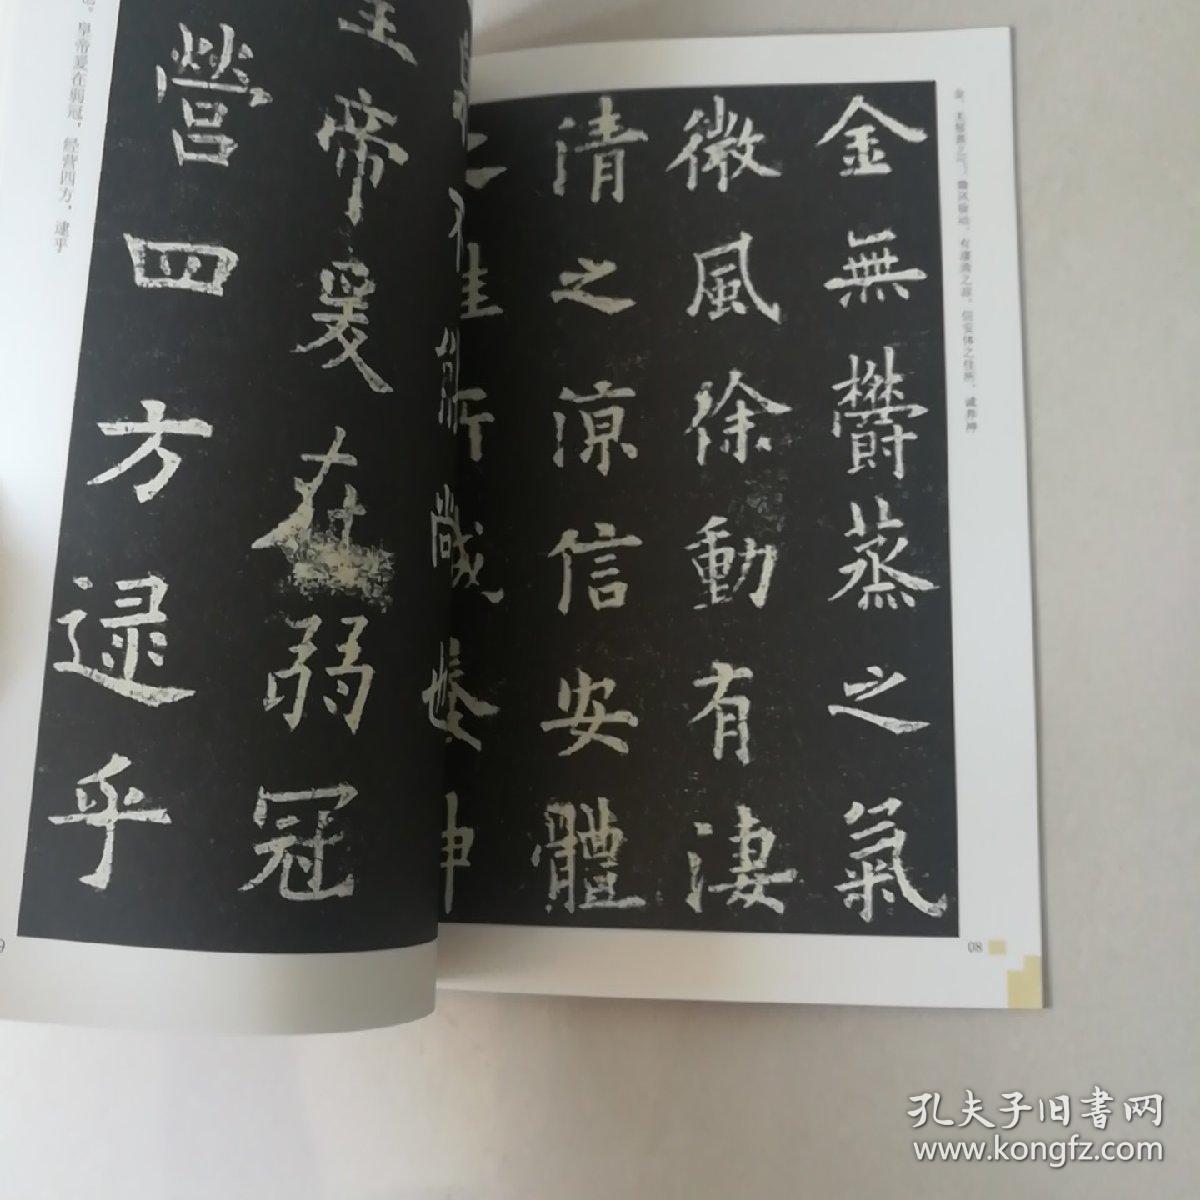 金無欝蒸之氣
微風徐動有淒
清之涼信安體
之佳所誠養神
金，无郁蒸之气。微风徐动，有凄清之凉。信安体之佳所，诚养神
08
帝爰在弱冠
營四方逮乎
皇帝爰在弱冠，经营四方，逮乎
9
孔夫子旧书网
www.kongfz.com